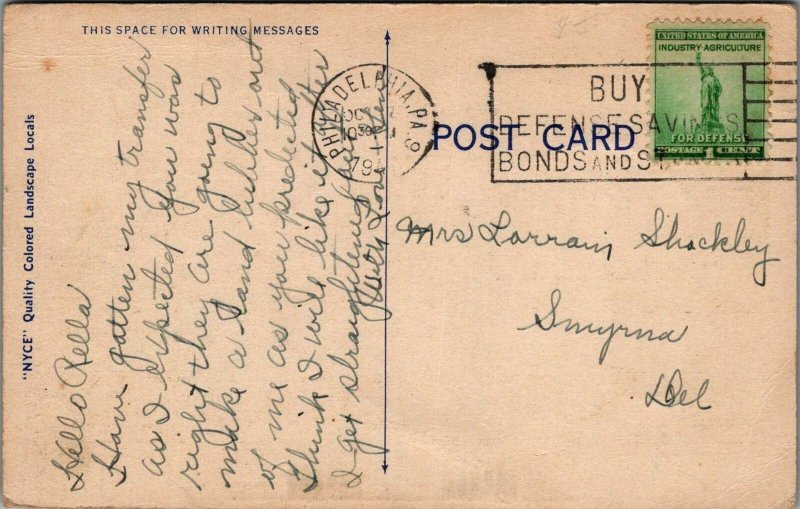 THIS SPACE FOR WRITING MESSAGES
"NYCE" Quality Colored Landscape Locals
Hello Rella
Have gotten my transfer
as I expected you was
right they are going to
make a land lubber out
of me as you predicted
Think I will like it after
I get straightened out
With Love
PHILADELPHIA, PA.
BUY
DEFENSE SAVINGS
BONDS AND
UNITED STATES OF AMERICA
INDUSTRY-AGRICULTURE
FOR DEFENSE
POSTAGE 1 CENT
POST CARD
Mrs Lorrain Shockley
Smyrna
Del